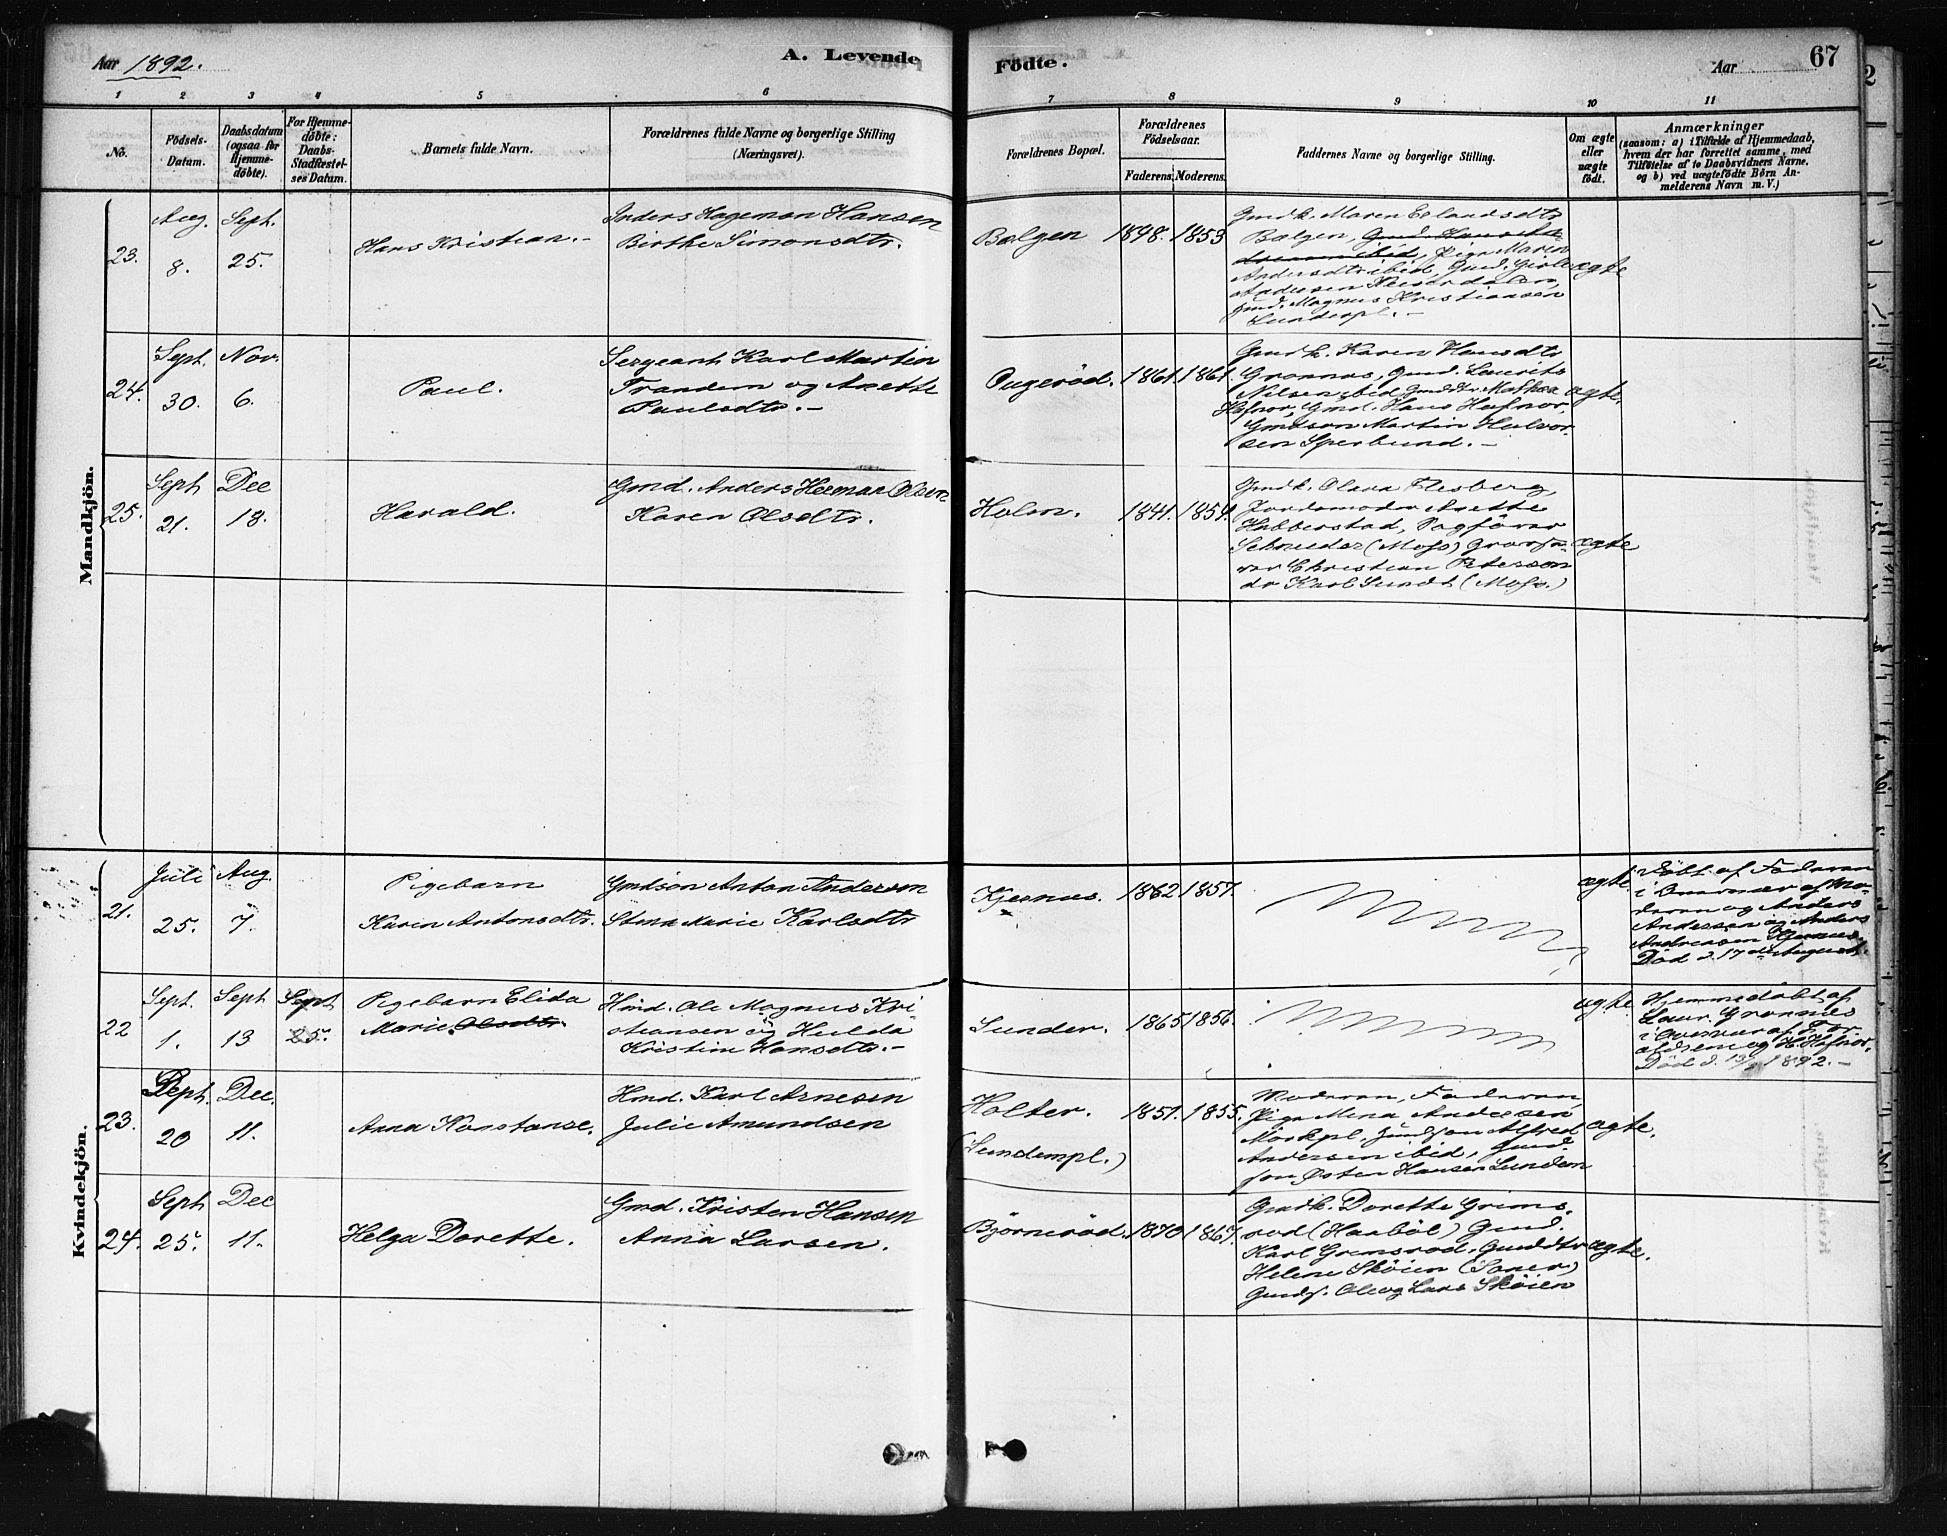 Aar 1892.
A. Levende
Födte.
Aar
67
1 2 3 4 5 6 7 8 9 10 11
No.
Födsels-
Datum.
Daabsdatum
(ogsaa for
Hjemme-
døbte).
For Hjemme-
døbte:
Daabs-
Stadfæstel-
ses Datum.
Barnets fulde Navn.
Forældrenes fulde Navne og borgerlige Stilling
(Næringsvei).
Forældrenes Bopæl.
Forældrenes
Födselsaar.
Faderens. Moderens.
Faddernes Navne og borgerlige Stilling.
Om ægte
eller
uægte
født.
Anmærkninger
(saasom: a) i Tilfælde af Hjemmedaab,
hvem der har forrettet samme, med
Tilføielse af to Daabsvidners Navne,
og b) ved uægtefødte Børn An-
melderens Navn m. V.)
Mandkjön.
23.
Aug.
8.
Sept.
25.
Hans Kristian.-
Anders Hageman Hansen
Birthe Simonsdtr.
Bælgen
1848. 1853
Gmdk. Maren Erlandsdtr
Bælgen, Gmd. Hans
ibid, Pige Maren
Andersdtr ibid, Gmd.
Andersen
Gmd. Magnus Kristiansen
Lunderpl. -
ægte
24.
Sept.
30.
Nov.
6.
Paul.
Sergeant Karl Martin
Trandem og Anette
Paulsdtr. -
1861. 1861.
Gmdk. Karen Hansdtr
Grønnes, Gmd. Laurits
Nilsen ibid, Gmddtr Mathea
Hafnor, Gmd. Hans Hafnor,
Gmdsøn Martin Halvor-
sen Sperbund. -
ægte.
25.
Sept
21.
Dec
18.
Harald.
Gmd. Anders Herman Olsen
Karen Olsdtr.
Holm.
1841. 1854.
Gmdk. Olava Flesberg,
Jordemoder Anette
Habberstad, Fogfører
Schneider (Moss)
Christian Petersen
do Karl Sundt (Moss.)
ægte
Kvindekjön.
21.
Juli
25.
Aug.
7.
Pigebarn
Karen Antonsdtr.
Gmdsøn Anton Anderson
Stina Marie Karlsdtr
Kjernes.
1862 1857.
ægte.
Døbt af Faderen
i Overvær af Mo-
deren og Anders
Andersen og Anders
Andreasen Kjernes.
Død d. 17de August.
22
Sept.
1.
Sept
13
Sept
25.
Pigebarn Elida
Marie Olsdtr.
Hmd. Ole Magnus Kri-
stiansen og Hulda
Kristine Hansdtr. -
Lunder.
1865 1856.
ægte.
Hjemmedøbt af
Laur. Grønnes
i Overvær af For-
ældrene og H. Hafnor.
Død d. 13/9 1892. -
23.
Sept.
20
Dec.
11.
Anna Konstanse.
Hmd. Karl Arnesen
Julie Amundsen
Holter.
(Lundempl.)
1851. 1855.
Moderen, Faderen,
Pige Mina Andersen
Mørkpl. Gmdsøn Alfred
Andersen ibid, Gmd-
søn Østen Hansen Lundem
ægte.
24.
Sept
25.
Dec
11.
Helga Dorette.
Gmd. Kristen Hansen
Anna Larsen.
Bjørnerød.
1870 1867.
Gmdk. Dorette Grims-
rød (Haabøl) Gmd.
Karl Grimsrød, Gmddtr
Helene Skøien (Soner)
Gmds. Ole og Lars Skøien
ægte.